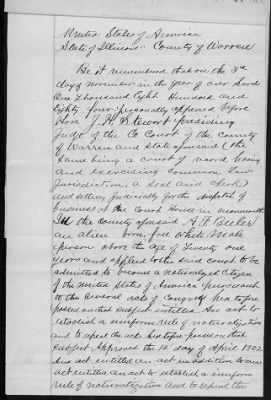 United States of America
State of Illinois County of Warren
Be it remembered that on the 3rd
day of November in the year of our Lord
One thousand Eight Hundred and
Eighty four personally appeared before
Hon J. H. Stewart presiding
Judge of the Co Court of the county
of Warren and state aforesaid (the
same being a court of record having
and exercising Common Law
Jurisdiction, a seal and clerk)
and sitting judicially for the dispatch of
business at the Court House in Monmouth
in the county aforesaid A. F.
an alien born, free white Male
person above the age of Twenty one
years and applied to the said court to be
admitted to become a naturalized citizen
of the United States of America pursuant
to the several acts of Congress heretofore
passed on that subject entitled An act to
establish a uniform rule of naturalization
and to repeal the acts heretofore passed on that
subject Approved the 14th day of April 1802
An act entitled an act in addition to an
act entitled an act to establish a uniform
rule of naturalization and to repeal the